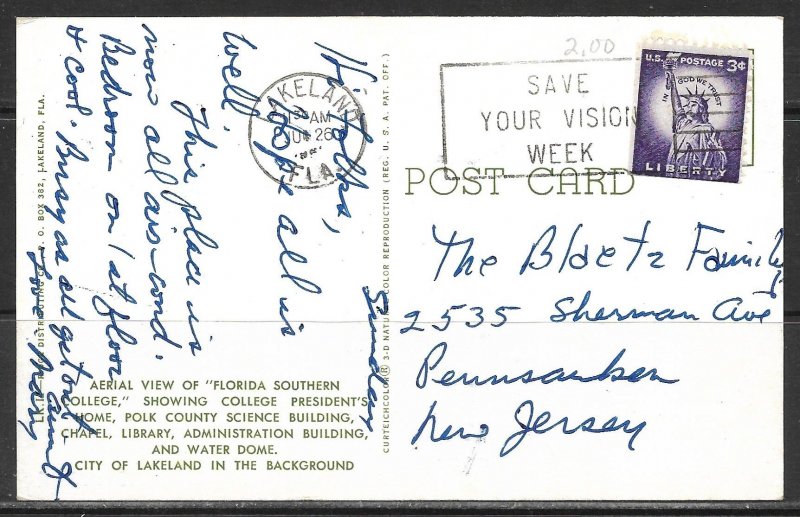 2.00
U.S. POSTAGE 3¢
IN GOD WE TRUST
LIBERTY
SAVE
YOUR VISION
WEEK
LAKELAND
AM
26
FLA.
POST CARD
The Blaetz Family
2535 Sherman Ave
Pennsauken
New Jersey
Sunday
Hi Folks,
Hope all is
well.
This place is
now all air-cond.
Bedroom on 1st floor
& cool. Busy as all get out.
Aunt
Mary
AERIAL VIEW OF "FLORIDA SOUTHERN
COLLEGE," SHOWING COLLEGE PRESIDENT'S
HOME, POLK COUNTY SCIENCE BUILDING,
CHAPEL, LIBRARY, ADMINISTRATION BUILDING,
AND WATER DOME.
CITY OF LAKELAND IN THE BACKGROUND
DISTRIBUTING P. O. BOX 362, LAKELAND, FLA.
CURTEICHCOLOR® 3-D NATURAL COLOR REPRODUCTION (REG. U. S. A. PAT. OFF.)